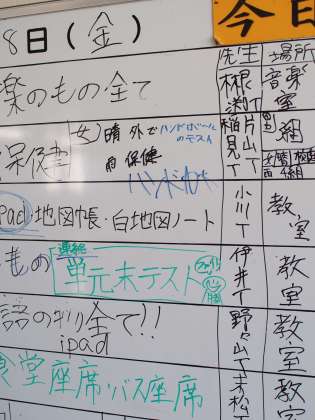 今日
8日(金)
先生 場所
楽のもの全て 根渕T 音楽室
保健 女) 晴 外で ハンドボールのテスト 片山T 組
雨 保健 稲見T
ハンド
ipad 地図帳・白地図ノート 小川T 教室
もの 連絡 単元末テスト 伊井T 教室
語のギリ全て!! 野々山T 教室
ipad
食堂座席・バス座席 赤松T 教室